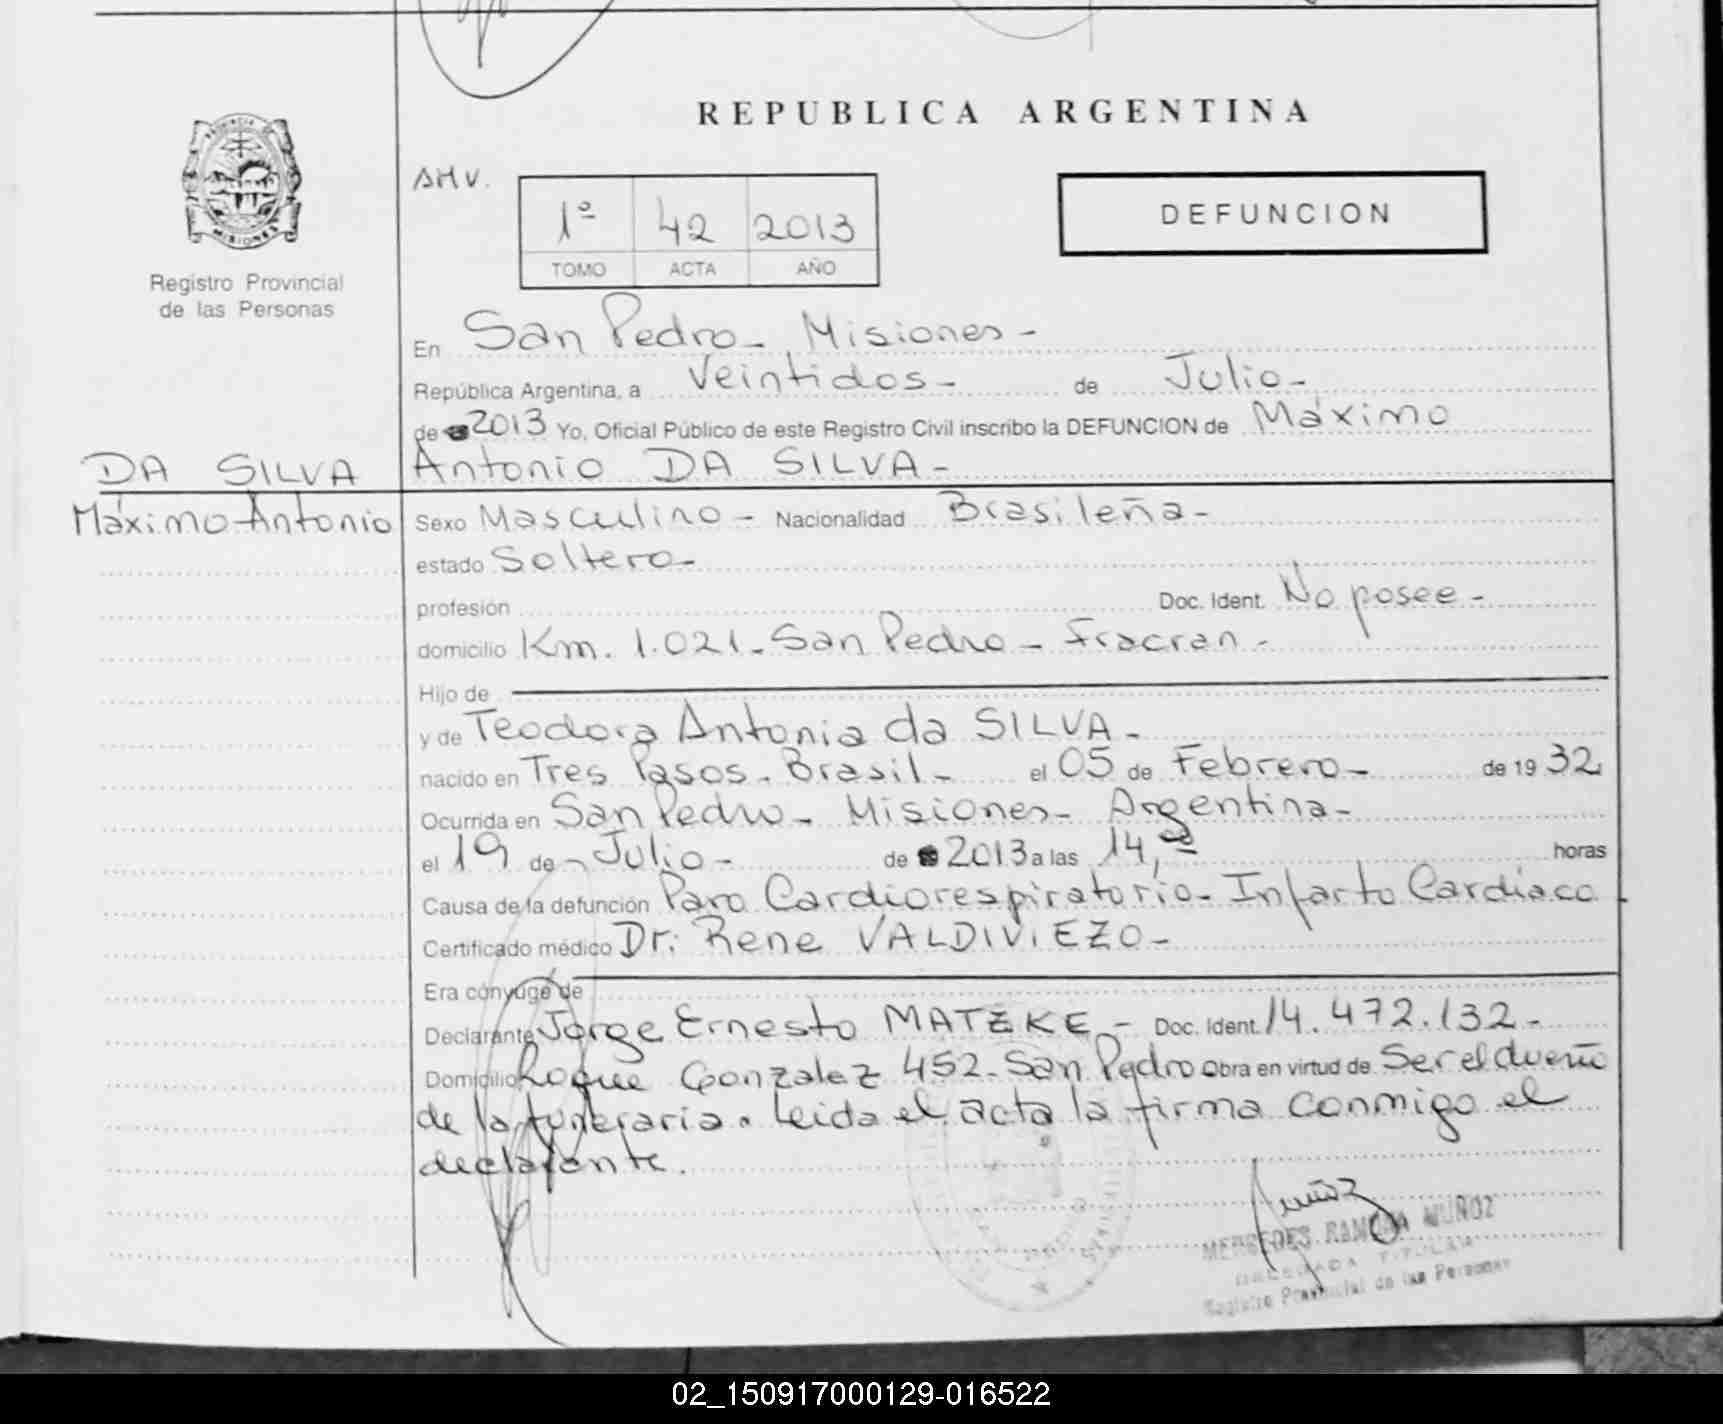 REPUBLICA ARGENTINA
PROVINCIA DE
MISIONES
Registro Provincial
de las Personas
AMV.
1º 42 2013
TOMO ACTA AÑO
DEFUNCION
En San Pedro - Misiones -
República Argentina, a Veintidos - de Julio -
de 2013 Yo, Oficial Público de este Registro Civil inscribo la DEFUNCION de Máximo
Antonio DA SILVA -
DA SILVA
Máximo Antonio
Sexo Masculino - Nacionalidad Brasileña -
estado Soltero -
profesión Doc. Ident. No posee -
domicilio Km. 1.021 - San Pedro - Fracran -
Hijo de
y de Teodora Antonia da SILVA -
nacido en Tres Pasos - Brasil - el 05 de Febrero - de 19 32
Ocurrida en San Pedro - Misiones - Argentina -
el 19 de - Julio - de 2013 a las 14, horas
Causa de la defunción Paro Cardiorespiratorio - Infarto Cardíaco -
Certificado médico Dr: Rene VALDIVIEZO -
Era cónyuge de
Declarante Jorge Ernesto MATZKE - Doc. Ident. 14.472.132 -
Domicilio Roque Gonzalez 452 - San Pedro Obra en virtud de Ser el dueño
de la funeraria. Leida el acta la firma conmigo el
declarante.
Muñoz
MERCEDES RAMONA MUÑOZ
DELEGADA TITULAR
Registro Provincial de las Personas
02_150917000129-016522